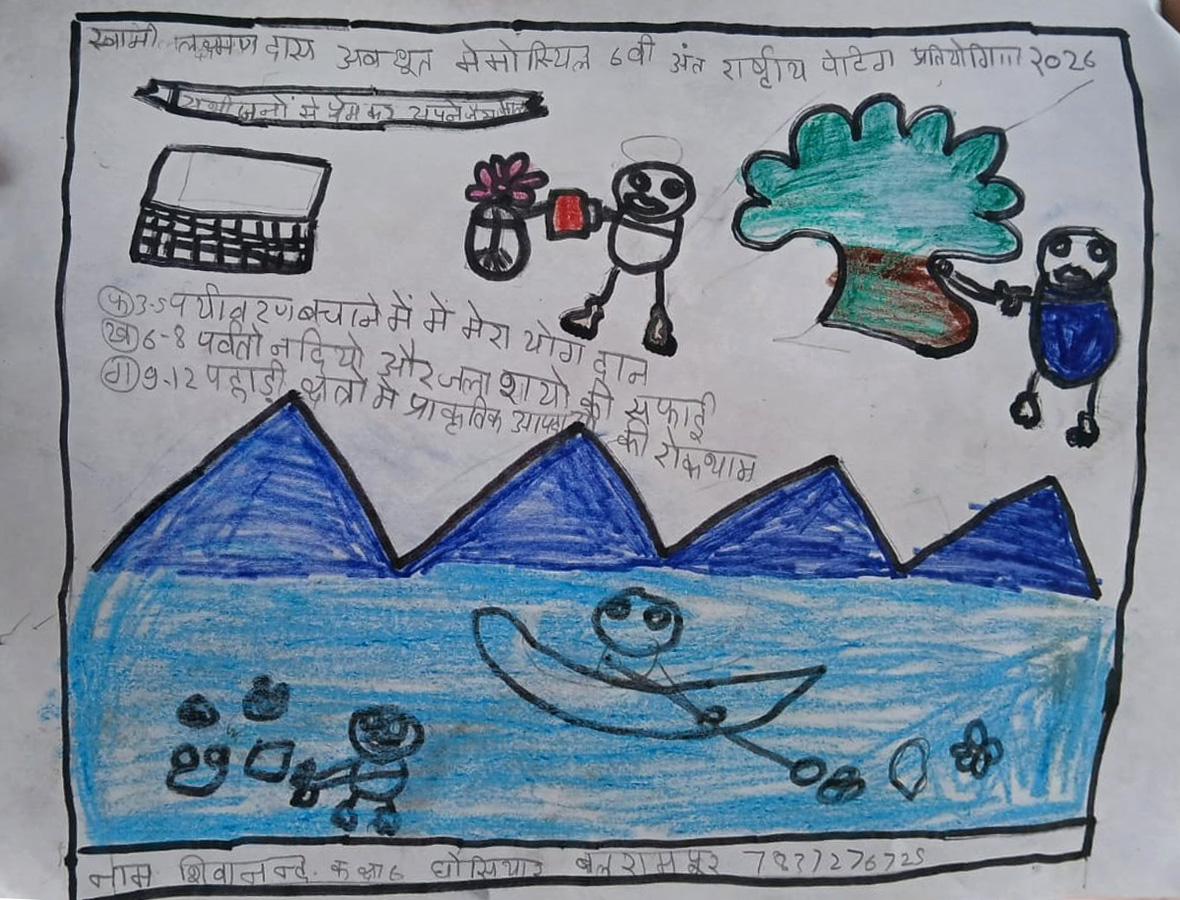 स्वामी लक्ष्मण दास अवधूत मेमोरियल 6वी अंत राष्ट्रीय पेटिंग 2026
जनों से प्रेम करे अपने
(क) 3-5 पर्यावरण बचाने में में मेरा योग दान
(ख) 6-8 पर्वतो नदियो और जला शयो की सफाई
(ग) 9-12 पहाड़ी क्षेत्रो में प्राकृतिक की रोकथाम
नाम शिवानन्द कक्षा 6 घोसियार बलरामपुर